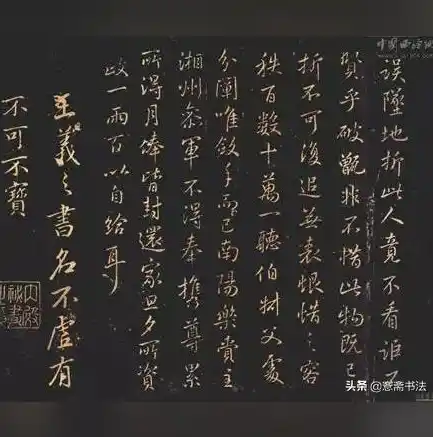 誤墜地折此人竟不看誰
賢乎破甑非不惜此物既已
折不可復追無表恨惜〻容
秩百數十萬一聽伯父處
分闔唯斂手而已南陽樂貴主
湘州參軍不得奉攜尊累
所得月俸皆封還家旦夕所資
一兩百以自給耳
王羲之書名不虛有
不可不寶
头条 @意斋书法